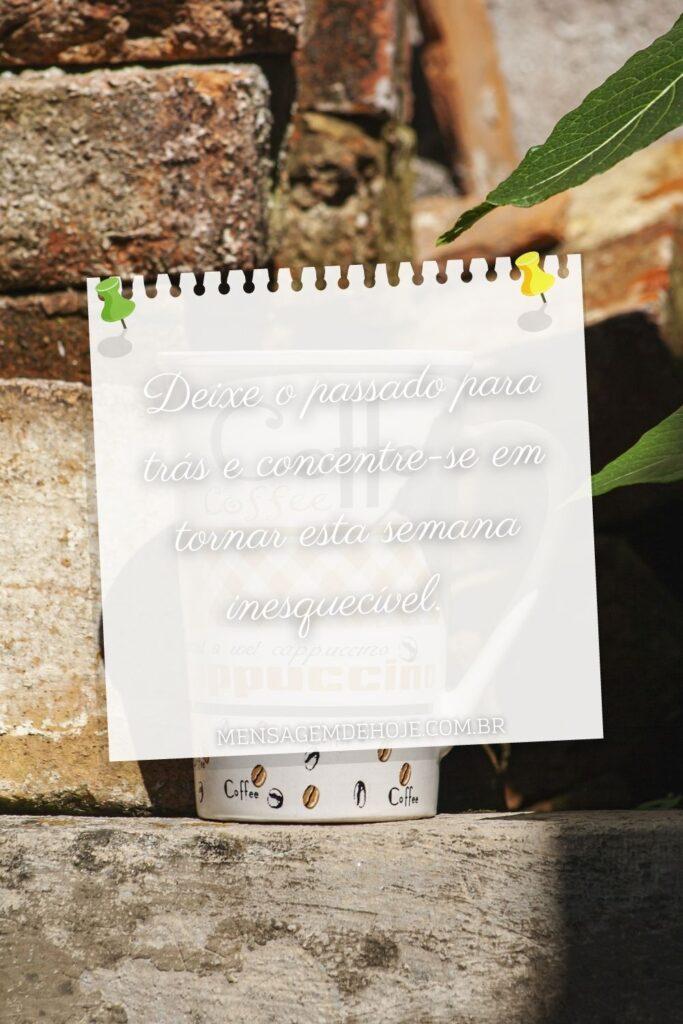 Deixe o passado para
trás e concentre-se em
tornar esta semana
inesquecível.
Coffee
a wet cappuccino
ppuccino
MENSAGEMDEHOJE.COM.BR
Coffee
Coffee